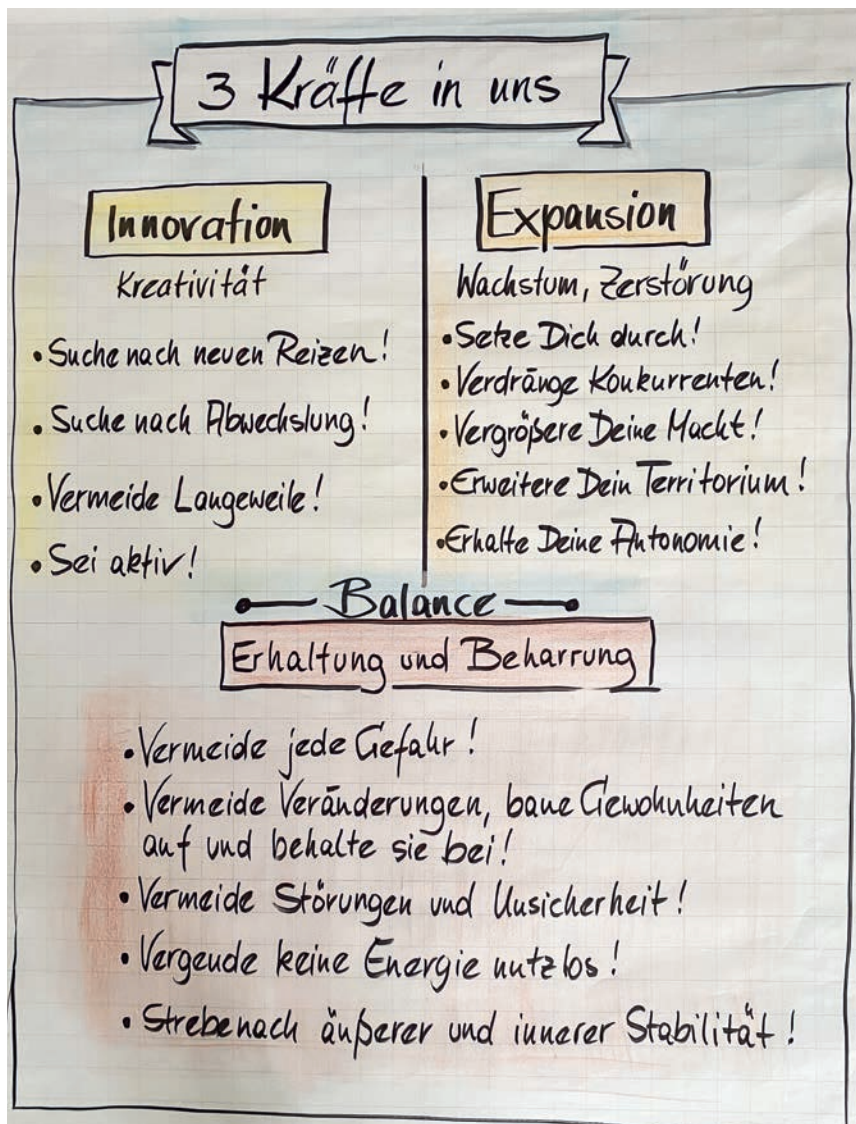 3 Kräfte in uns
Innovation
Kreativität
• Suche nach neuen Reizen!
• Suche nach Abwechslung!
• Vermeide Langeweile!
• Sei aktiv!
Expansion
Wachstum, Zerstörung
• Setze Dich durch!
• Verdränge Konkurrenten!
• Vergrößere Deine Macht!
• Erweitere Dein Territorium!
• Erhalte Deine Autonomie!
Balance
Erhaltung und Beharrung
• Vermeide jede Gefahr!
• Vermeide Veränderungen, baue Gewohnheiten
auf und behalte sie bei!
• Vermeide Störungen und Unsicherheit!
• Vergeude keine Energie nutzlos!
• Strebe nach äußerer und innerer Stabilität!